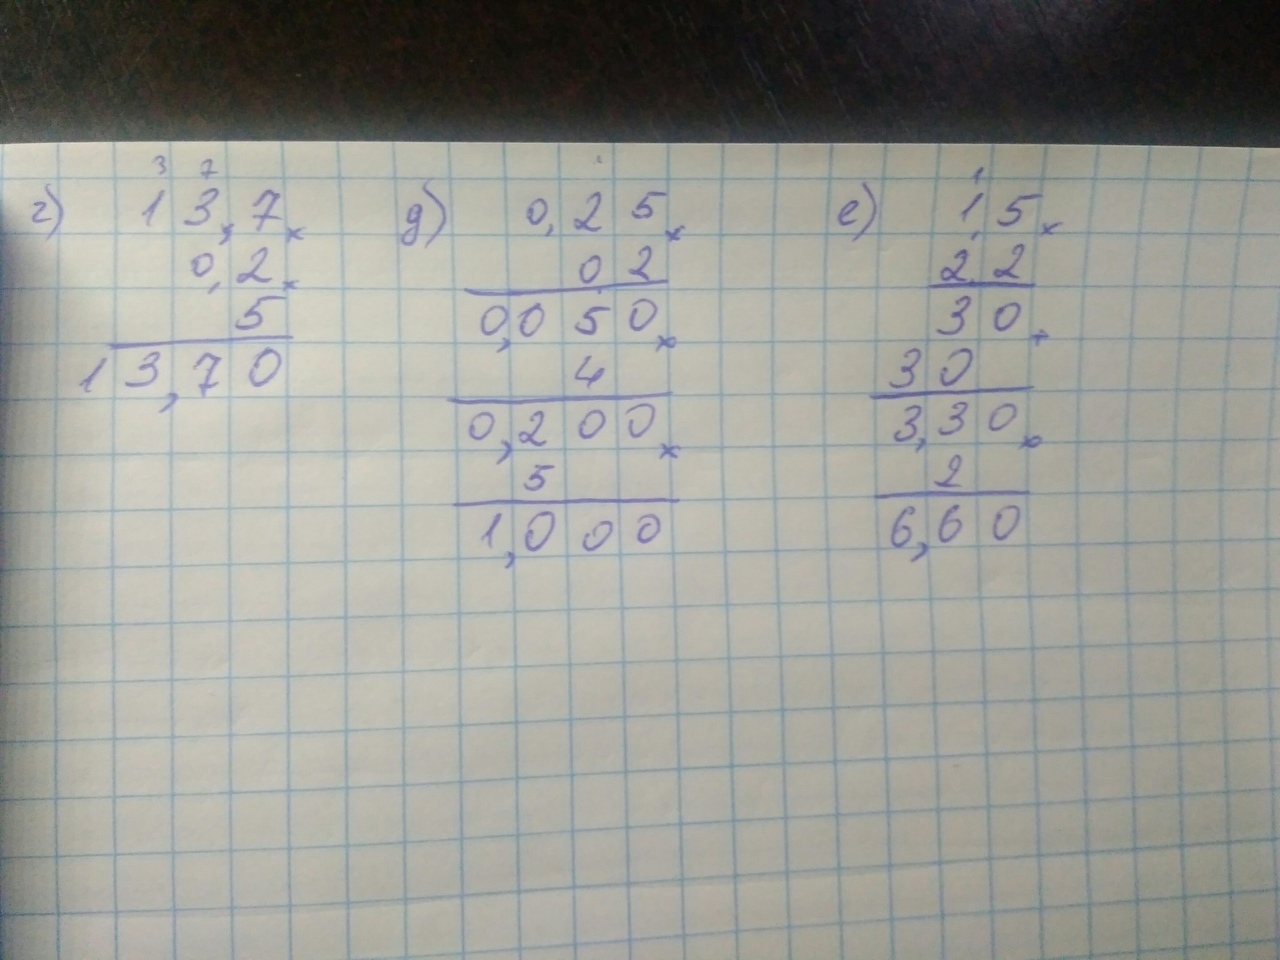 3 7
г) 13,7 ×
0,2 ×
5
13,70
д) 0,25 ×
0 2
0,050 ×
4
0,200 ×
5
1,000
1
е) 1,5 ×
2,2
30 +
30
3,30 ×
2
6,60